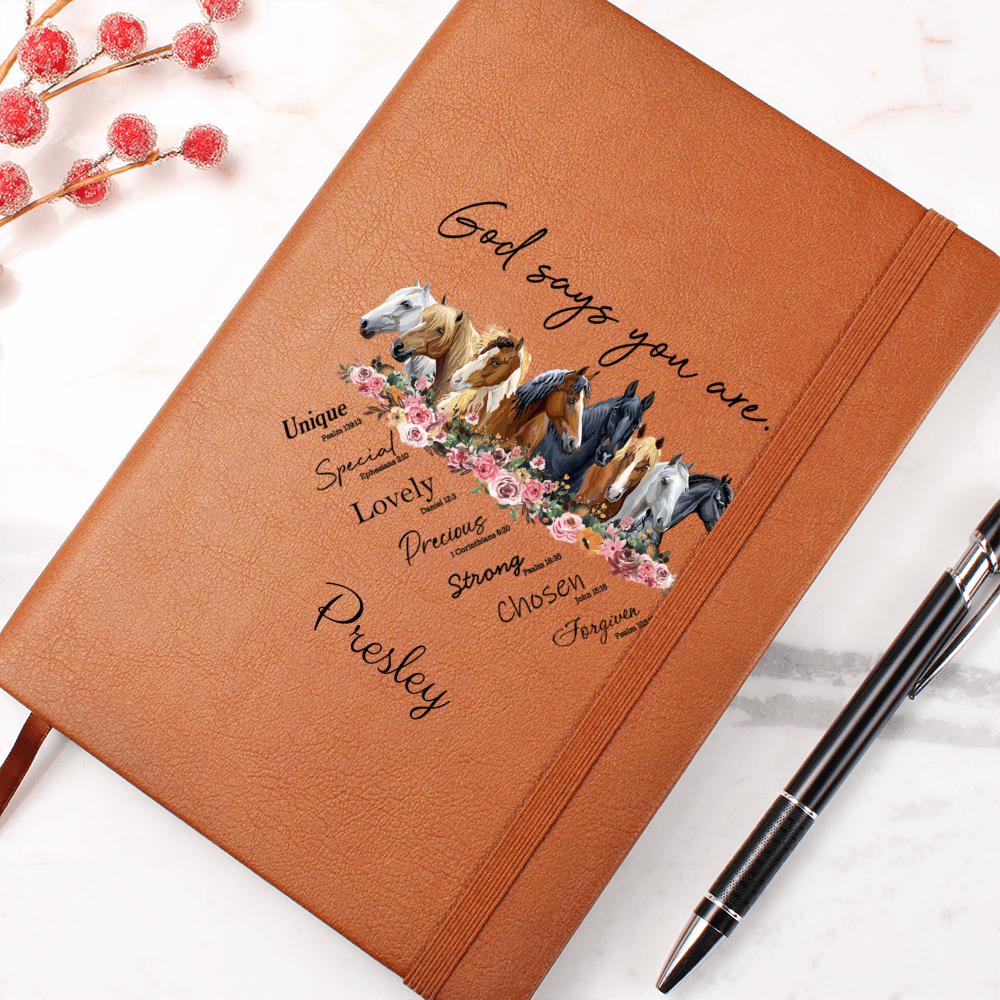 God says you are.
Unique
Psalm 139:13
Special
Ephesians 2:10
Lovely
Daniel 12:3
Precious
1 Corinthians 6:20
Strong
Psalm 18:35
Chosen
John 15:16
Forgiven
Psalm
Presley